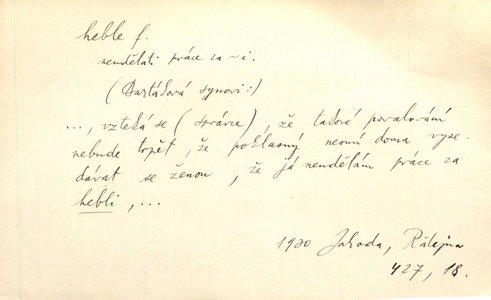 heble f.
neudělati práce za ~i.
(Bartáková synovi:)
..., vzteká se (správce), že takové povalování
nebude trpět, že poklasný nesmí doma vyse-
dávat se ženou, že já neudělám práce za
hebli, ...
1930 Jahoda,
427, 18.